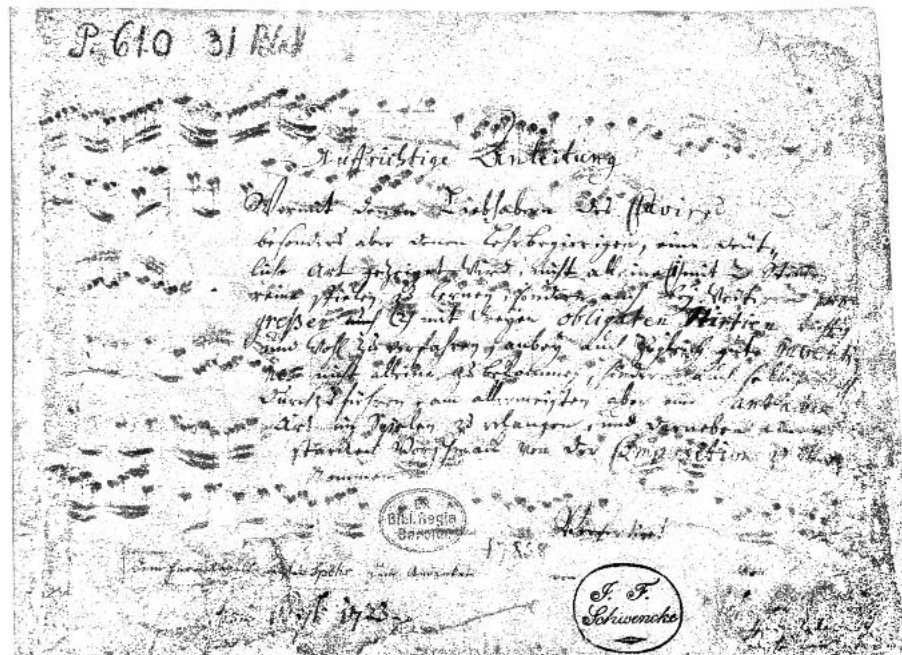 P. 610 31 Blatt
Auffrichtige Anleitung
Wormit denen Liebhabern des Clavires
besonders aber denen Lehrbegierigen, eine deüt-
liche Art gezeiget wird, nicht alleine (1) mit 2 Stimen
reine spielen zu lernen, sondern auch bey weiteren pro-
greßen auch (2) mit dreyen obligaten Partien richtig
und wohl zu verfahren, anbey auch zugleich gute inventi-
ones nicht alleine zu bekommen, sondern auch selbige
durchzuführen, am allermeisten aber eine cantable
Art im Spielen zu erlangen, und darneben einen
starcken Vorschmack von der Composition zu über-
kommen.
Ex
Bibl. Regia
Berolin.
Verfertiget
zum Andenken von
J. F.
Schwencke
1723